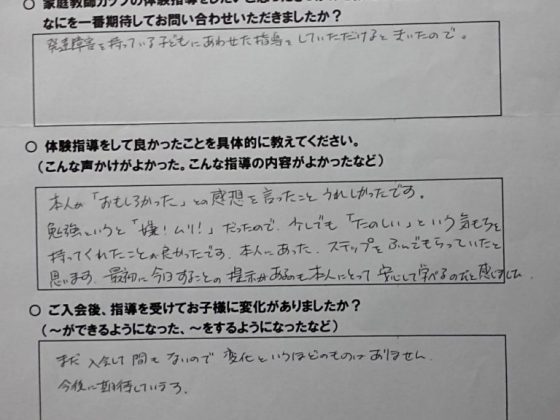 なにを一番期待してお問い合わせいただきましたか？
発達障害を持っている子どもにあわせた指導をしていただけるときいたので。
○ 体験指導をして良かったことを具体的に教えてください。
（こんな声かけがよかった。こんな指導の内容がよかったなど）
本人が「おもしろかった」との感想を言ったこと うれしかったです。
勉強というと「嫌！ムリ！」だったので、少しでも「たのしい」という気もちを
持ってくれたことの良かったです。本人にあった、ステップをふんでもらっていたと
思います。最初に今日することの提示があるのも本人にとって安心して学べるのだと感じました。
○ ご入会後、指導を受けてお子様に変化がありましたか？
（～ができるようになった、～をするようになったなど）
まだ入会して間もないので変化というほどのものはありません。
今後に期待している